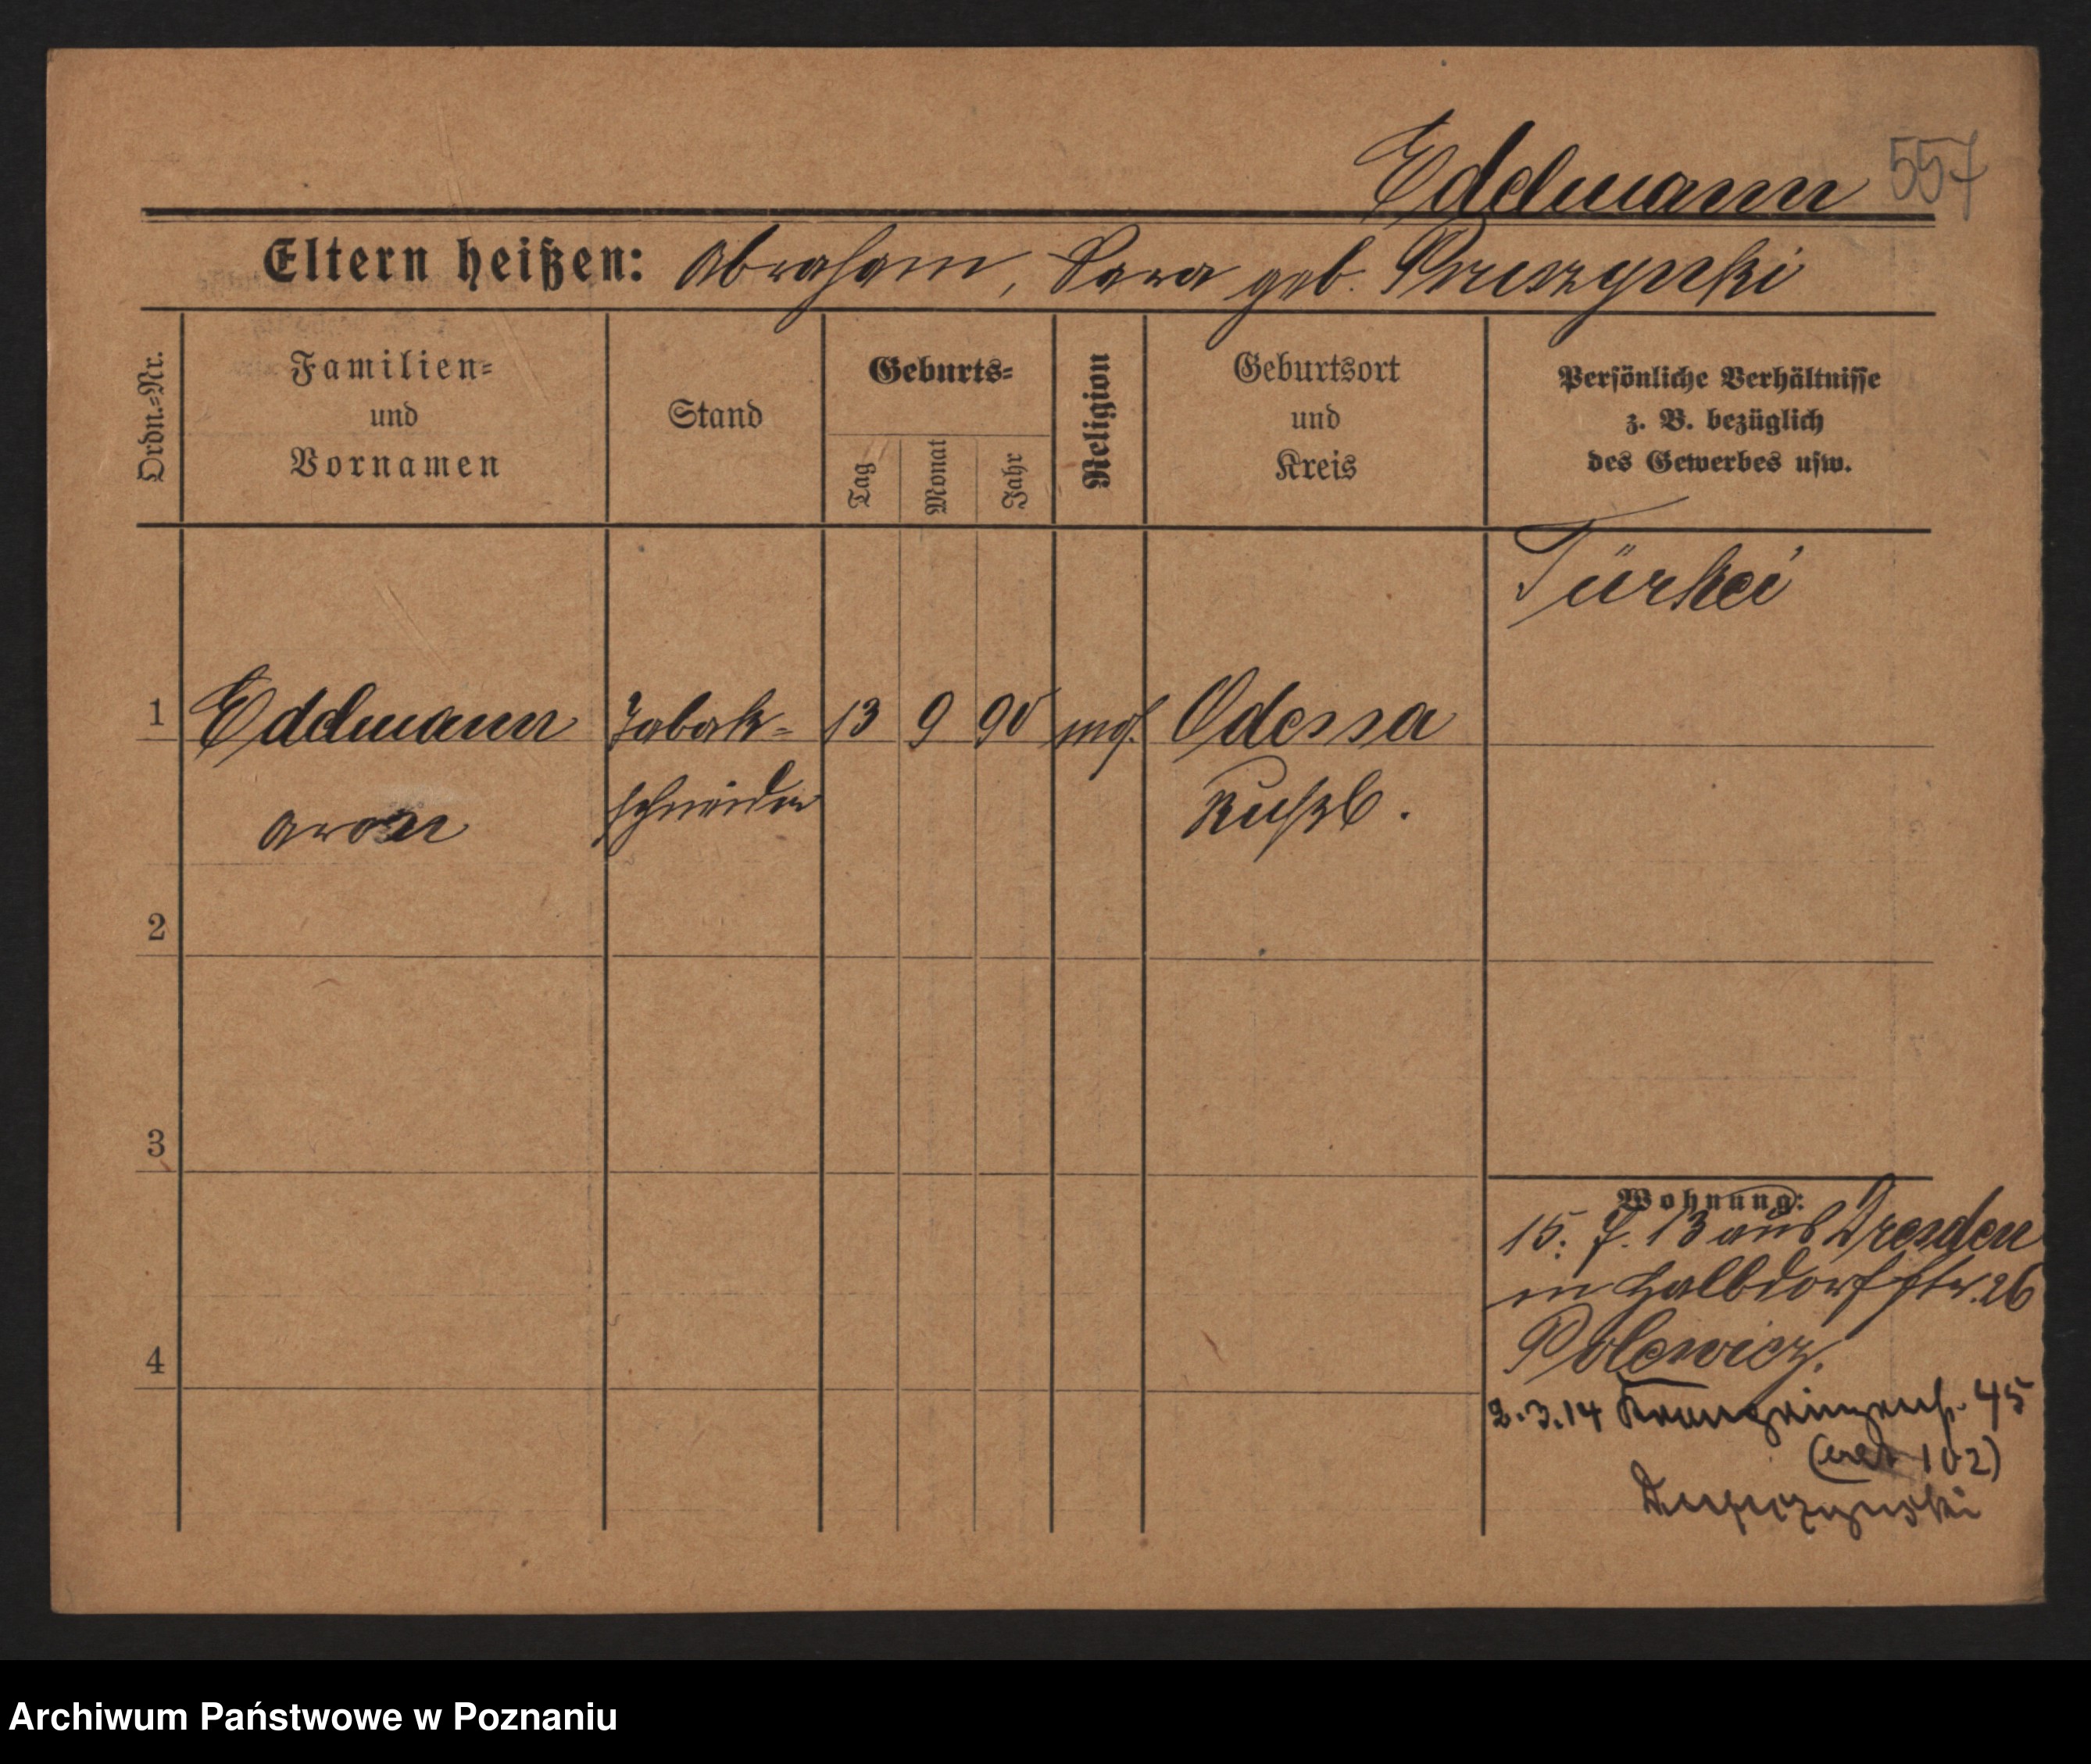 Edelmann 557
Eltern heißen: Abraham, Sara geb. Pruszynski
Ordn.-Nr.
Familien-
und
Vornamen
Stand
Geburts-
Tag
Monat
Jahr
Religion
Geburtsort
und
Kreis
Persönliche Verhältnisse
z. B. bezüglich
des Gewerbes usw.
Türkei
1 Edelmann Tabak- 13 9 90 mos. Odessa
Aron schneider Rußl.
2
3
4
Wohnung:
15. 7. 13 aus Dresden
in Halbdorfstr. 26
Polewicz.
2.3.14 Kronprinzenst. 45
102)
Archiwum Państwowe w Poznaniu